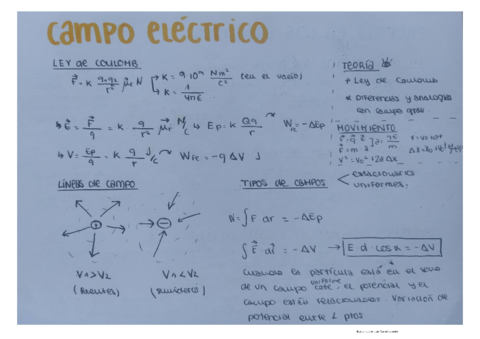 CAMPO ELÉCTRICO
LEY DE COULOMB
F⃗ = K q₁q₂/r² μ⃗r N
K = 9·10⁹ Nm²/C² (en el vacío)
K = 1/4πε
↳ E⃗ = F⃗/q = K · q/r² μ⃗r N/C ↳ Ep = K Qq/r ↷ WFe = -ΔEp
↳ V = Ep/q = K q/r J/C ↷ WFe = -q ΔV J
TEORÍA
* Ley de Coulomb
* Diferencias y analogías
con campo grav
MOVIMIENTO
v² = v₀² + 2a Δx
estacionarios
uniformes.
LÍNEAS DE CAMPO
+
−
V₁ > V₂
V₁ < V₂
(fuentes)
(sumideros)
TIPOS DE CAMPOS
W = ∫ F dr = -ΔEp
∫ E⃗ dl⃗ = -ΔV → E · d · cos α = -ΔV
Cuando la partícula está en el seno
de un campo uniforme, el potencial y el
campo están relacionados. Variación de
potencial entre 2 ptos